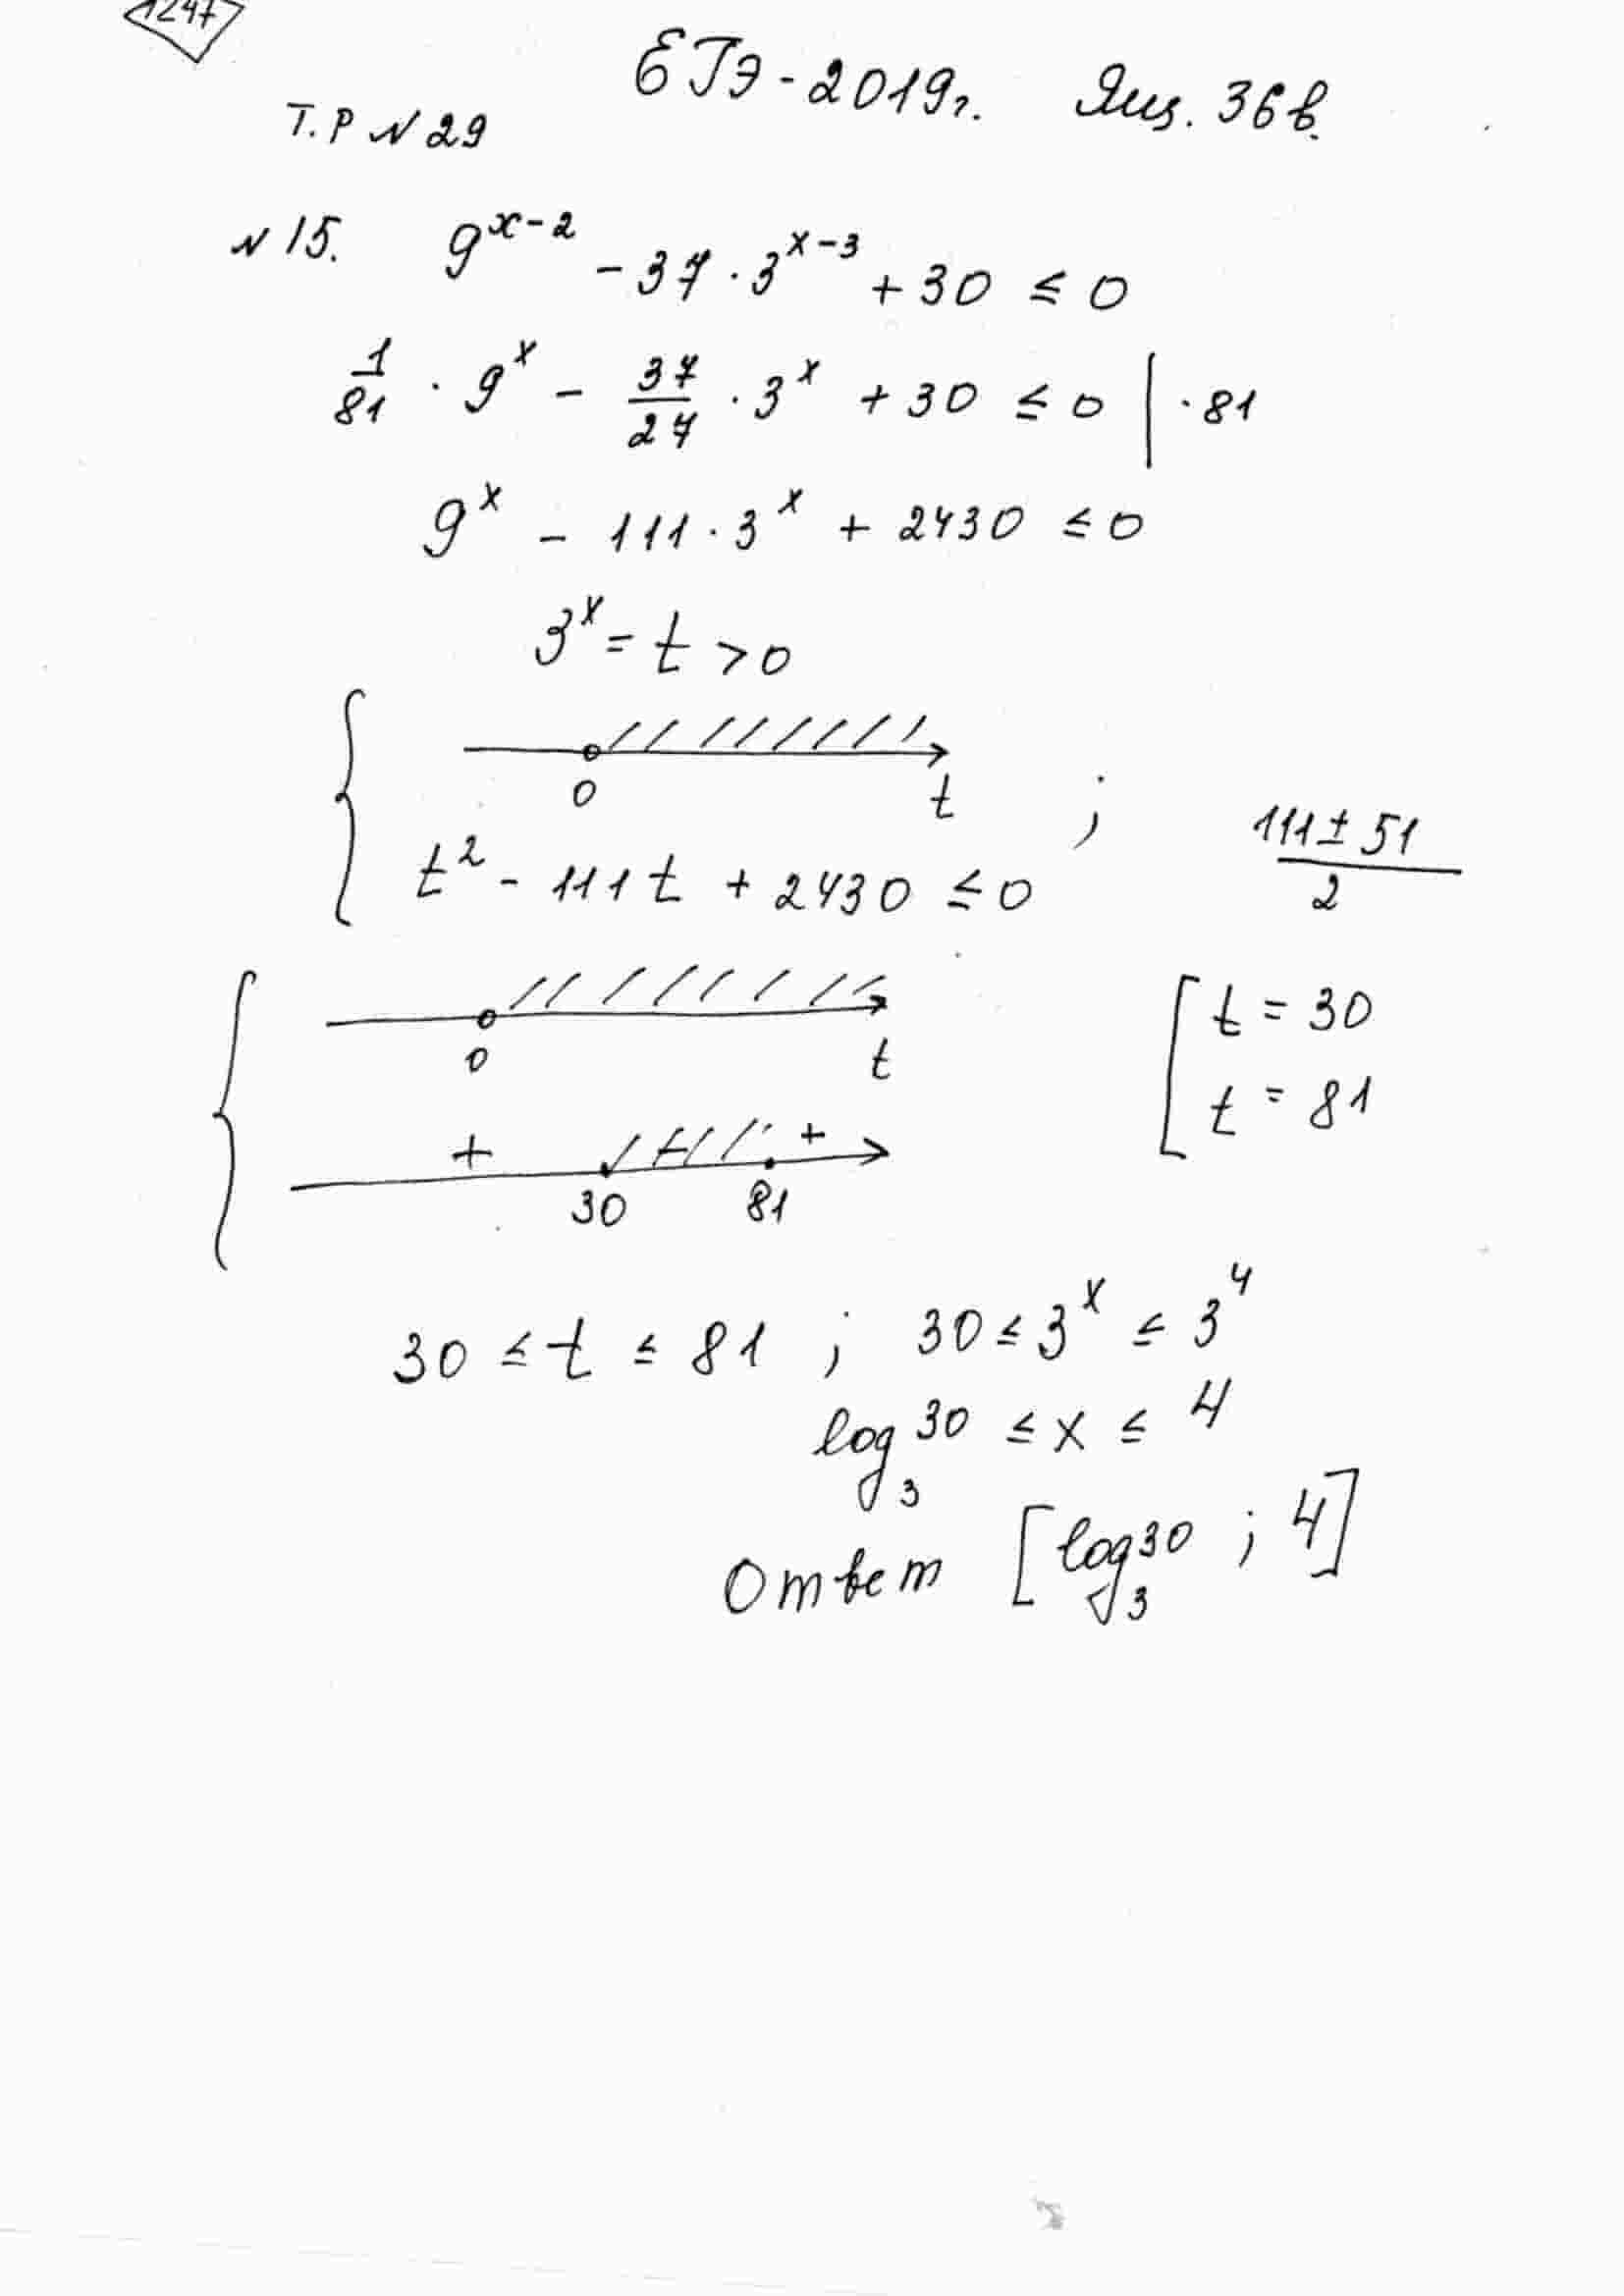 1247
ЕГЭ-2019г. Ящ. 36в.
Т.Р №29
№15. 9^(x-2) - 37·3^(x-3) + 30 ≤ 0
1/81 · 9^x - 37/27 · 3^x + 30 ≤ 0 | ·81
9^x - 111·3^x + 2430 ≤ 0
3^x = t > 0
0 t ;
t² - 111t + 2430 ≤ 0
(111 ± 51)/2
0 t
t = 30
t = 81
+ - +
30 81
30 ≤ t ≤ 81 ; 30 ≤ 3^x ≤ 3^4
log₃30 ≤ x ≤ 4
Ответ [log₃30 ; 4]